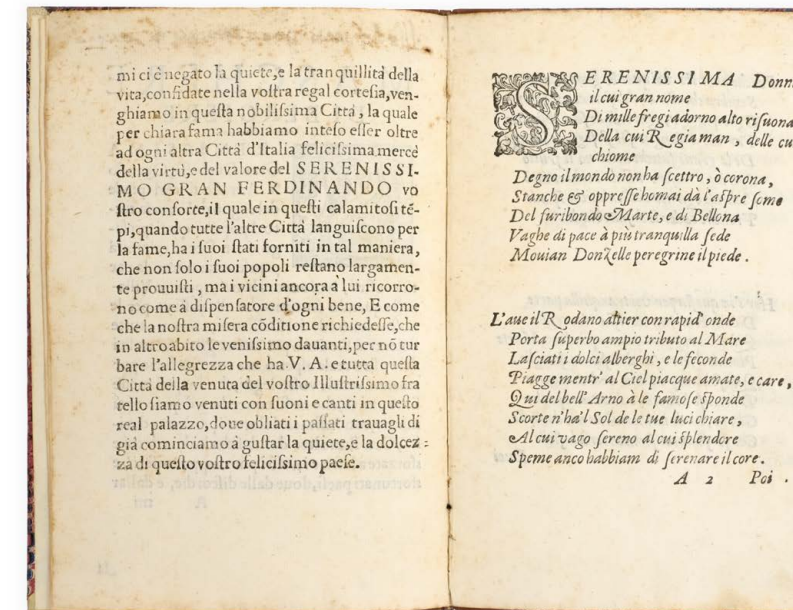 mi ci è negato la quiete,e la tranquillità della
vita,confidate nella vostra regal cortesia,ven-
ghiamo in questa nobilissima Città , la quale
per chiara fama habbiamo inteso esser oltre
ad ogni altra Città d'Italia felicissima mercè
della virtù,e del valore del SERENISSI-
MO GRAN FERDINANDO vo
stro consorte,il quale in questi calamitosi tẽ-
pi,quando tutte l'altre Città languiscono per
la fame,ha i suoi stati forniti in tal maniera,
che non solo i suoi popoli restano largamen-
te prouisti , ma i vicini ancora à lui ricorro-
no come à dispensatore d'ogni bene, E come
che la nostra misera cõditione richiedesse,che
in altro abito le venissimo dauanti,per nõ tur
bare l'allegrezza che ha V. A. e tutta questa
Città della venuta del vostro Illustrissimo fra
tello siamo venuti con suoni e canti in questo
real palazzo,doue obliati i passati trauagli di
già cominciamo à gustar la quiete,e la dolcez=
za di questo vostro felicissimo paese.
SERENISSIMA Donn
il cui gran nome
Di mille fregi adorno alto risuona
Della cui Regia man , delle cu
chiome
Degno il mondo non ha scettro , ò corona ,
Stanche & oppresse homai dà l'aspre some
Del furibondo Marte, e di Bellona
Vaghe di pace à più tranquilla sede
Mouian Donzelle peregrine il piede .
L'aue il Rodano altier con rapid' onde
Porta superbo ampio tributo al Mare
Lasciati i dolci alberghi , e le feconde
Piagge mentr' al Ciel piacque amate, e care ,
Qui del bell' Arno à le famose sponde
Scorte n'ha'l Sol de le tue luci chiare ,
Al cui vago sereno al cui splendore
Speme anco habbiam di serenare il core .
A 2 Poi .